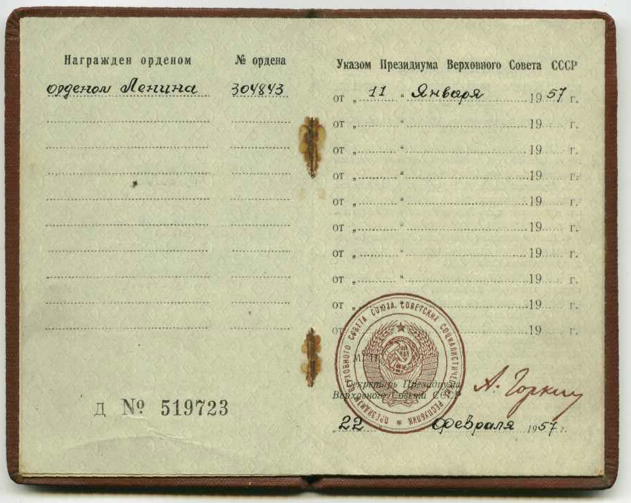 Награжден орденом
№ ордена
орденом Ленина
304843
Указом Президиума Верховного Совета СССР
от „ 11 “ Января 1957 г.
от „ “ 19 г.
от „ “ 19 г.
от „ “ 19 г.
от „ “ 19 г.
от „ “ 19 г.
от „ “ 19 г.
от „ “ 19 г.
от „ “ 19 г.
от „ “ 19 г.
ПРЕЗИДИУМ ВЕРХОВНОГО СОВЕТА СОЮЗА СОВЕТСКИХ СОЦИАЛИСТИЧЕСКИХ РЕСПУБЛИК
М. П.
Секретарь Президиума
Верховного Совета СССР
А. Горкин
„ 22 “ февраля 1957 г.
Д № 519723